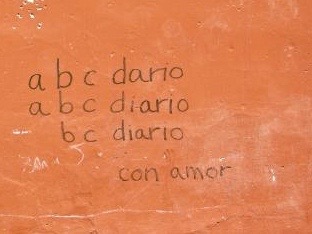 a b c dario
a b c diario
b c diario
con amor